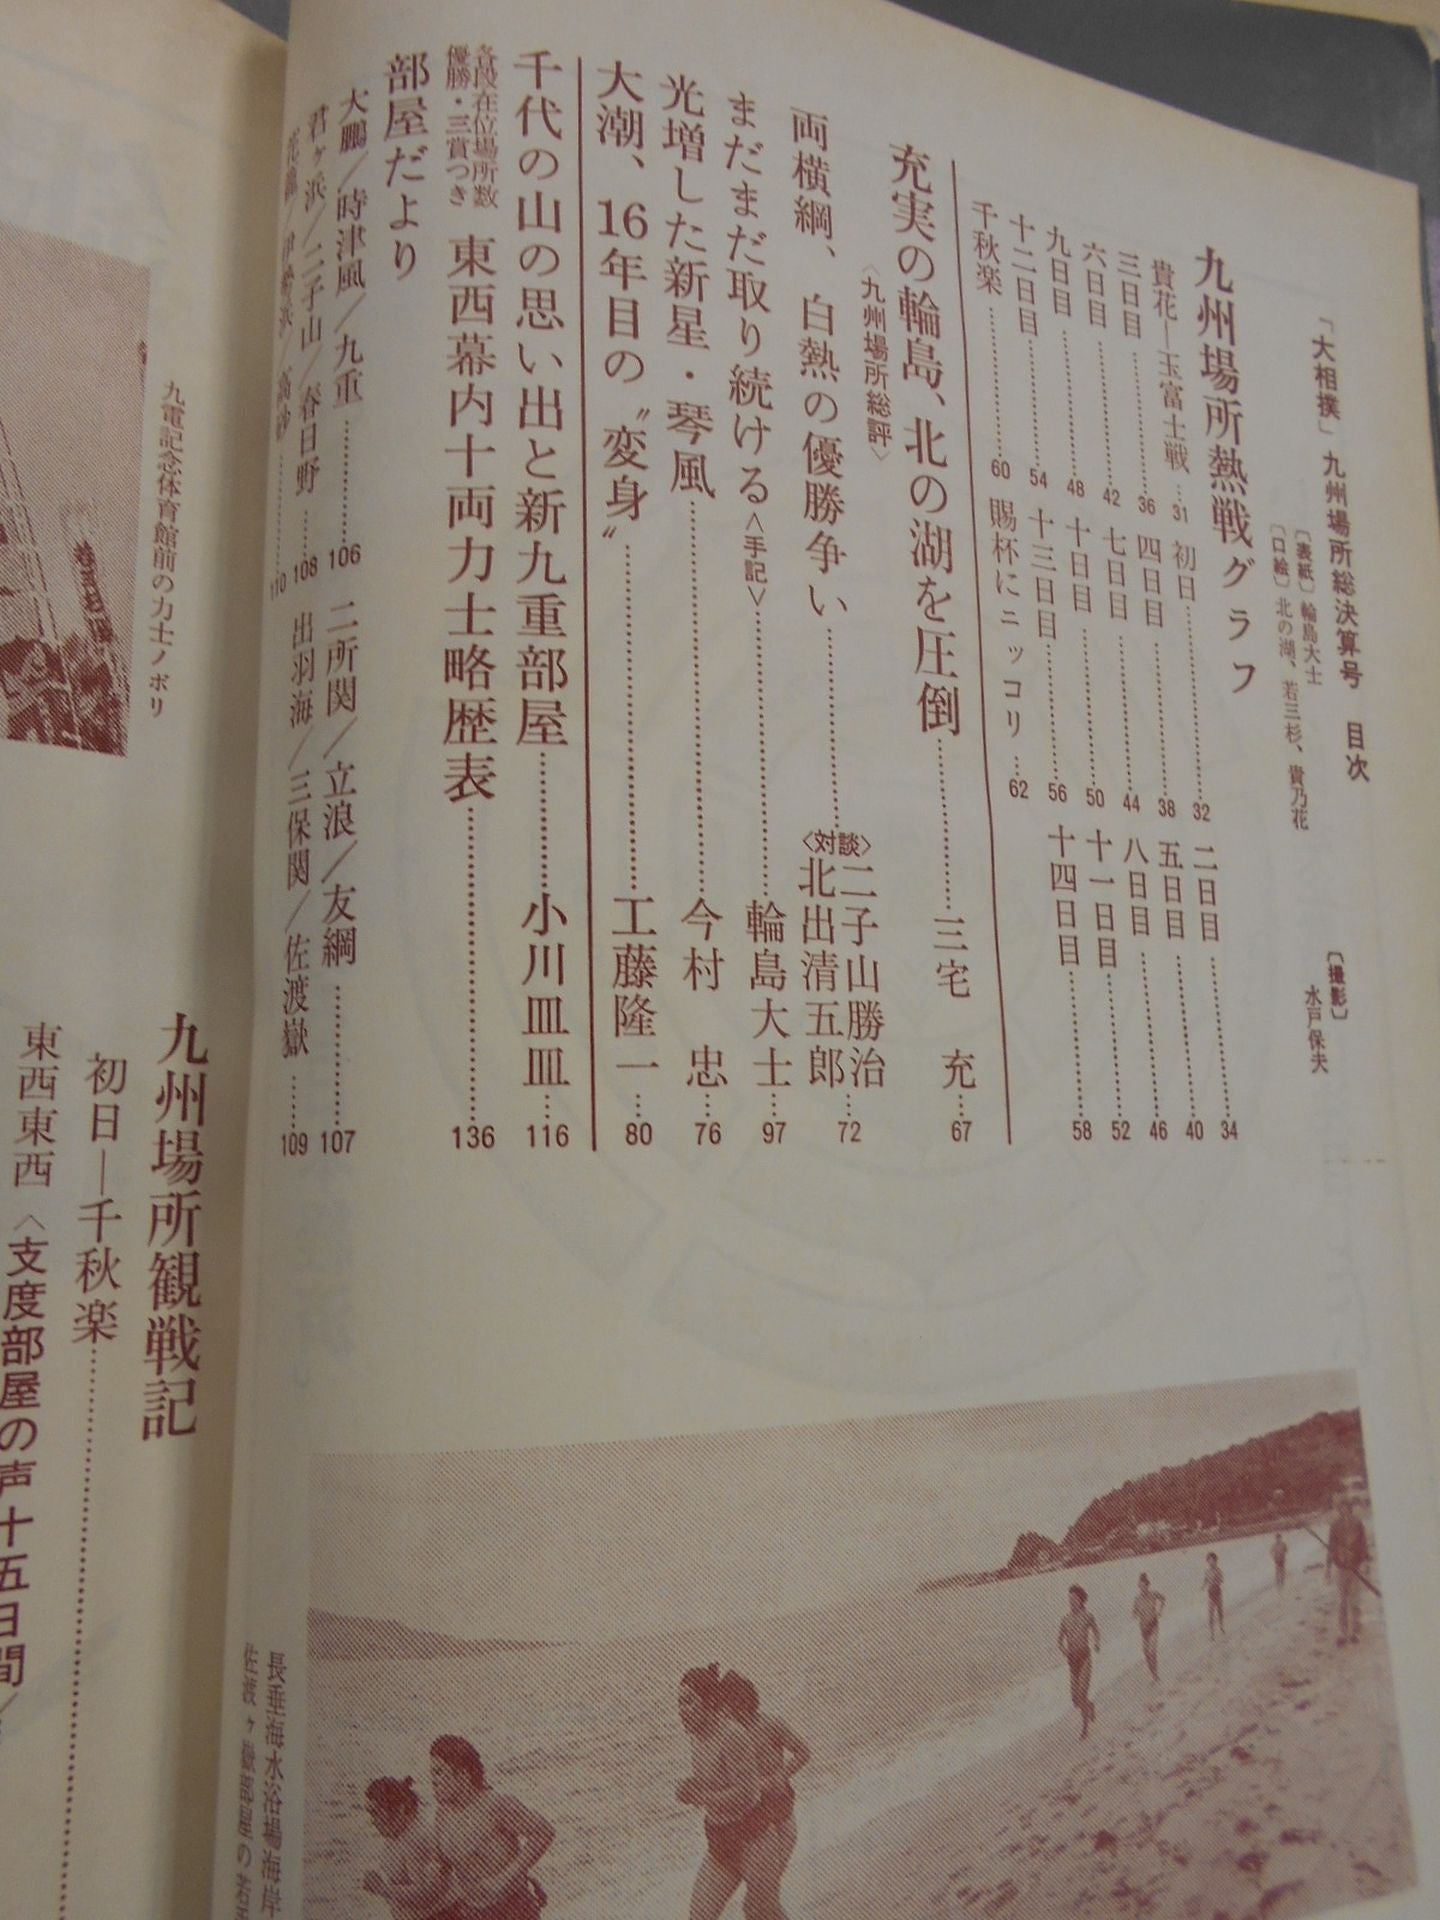 「大相撲」九州場所総決算号 目次
〔表紙〕輪島大士
〔口絵〕北の湖、若三杉、貴乃花
〔撮影〕
水戸保夫
九州場所熱戦グラフ
貴花―玉富士戦…31 初日…32 二日目…34
三日目…36 四日目…38 五日目…40
六日目…42 七日目…44 八日目…46
九日目…48 十日目…50 十一日目…52
十二日目…54 十三日目…56 十四日目…58
千秋楽…60 賜杯にニッコリ…62
充実の輪島、北の湖を圧倒…三宅 充…67
〈九州場所総評〉
両横綱、白熱の優勝争い…〈対談〉二子山勝治 北出清五郎…72
まだまだ取り続ける〈手記〉…輪島大士…97
光増した新星・琴風…今村 忠…76
大潮、16年目の〝変身〟…工藤隆一…80
千代の山の思い出と新九重部屋…小川皿皿…116
各段在位場所数
優勝・三賞つき
東西幕内十両力士略歴表…136
部屋だより
大鵬／時津風／九重…106 二所関／立浪／友綱…107
君ヶ浜／二子山／春日野…108 出羽海／三保関／佐渡嶽…109
花籠／伊勢ヶ浜／高砂…110
長垂海水浴場海岸
佐渡ヶ嶽部屋の若
九電記念体育館前の力士ノボリ
九州場所観戦記
初日―千秋楽
東西東西〈支度部屋の声十五日間